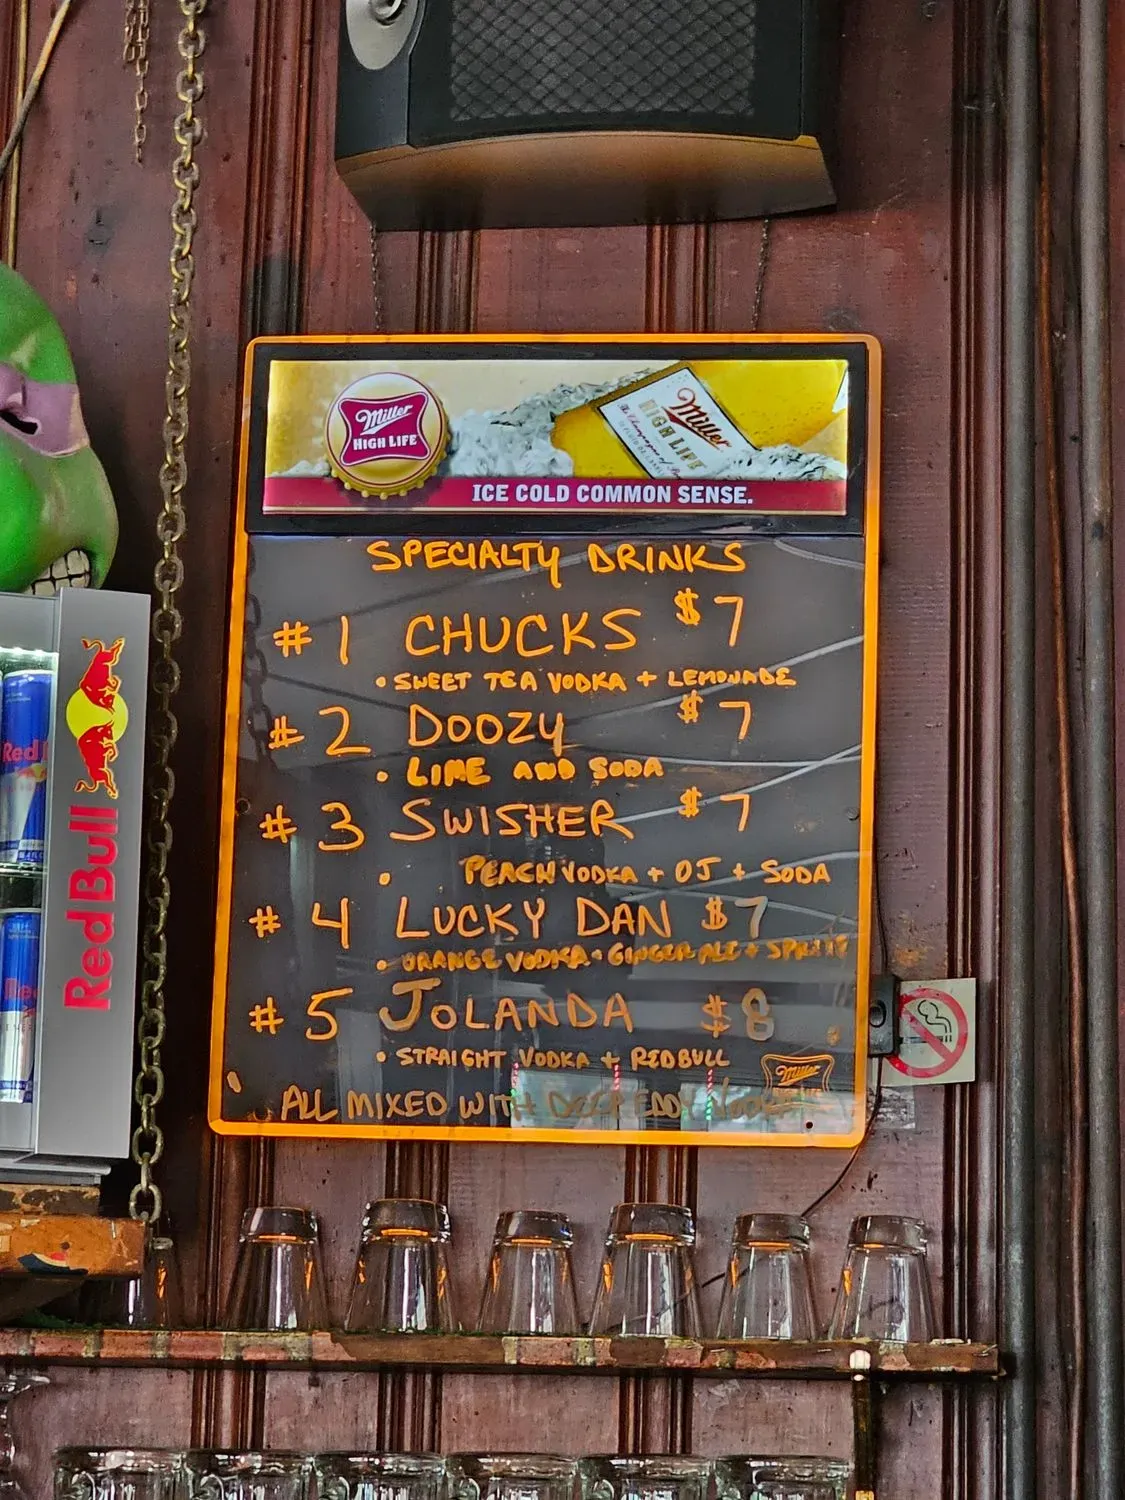 Miller
HIGH LIFE
Miller
HIGH LIFE
ICE COLD COMMON SENSE.
SPECIALTY DRINKS
#1 CHUCKS $7
• SWEET TEA VODKA + LEMONADE
#2 DOOZY $7
• LIME AND SODA
#3 SWISHER $7
• PEACH VODKA + OJ + SODA
#4 LUCKY DAN $7
• ORANGE VODKA + GINGER ALE + SPRITE
#5 JOLANDA $8
• STRAIGHT VODKA + REDBULL
Miller
ALL MIXED WITH DEEP EDDY VODKA
Red Bull
Red